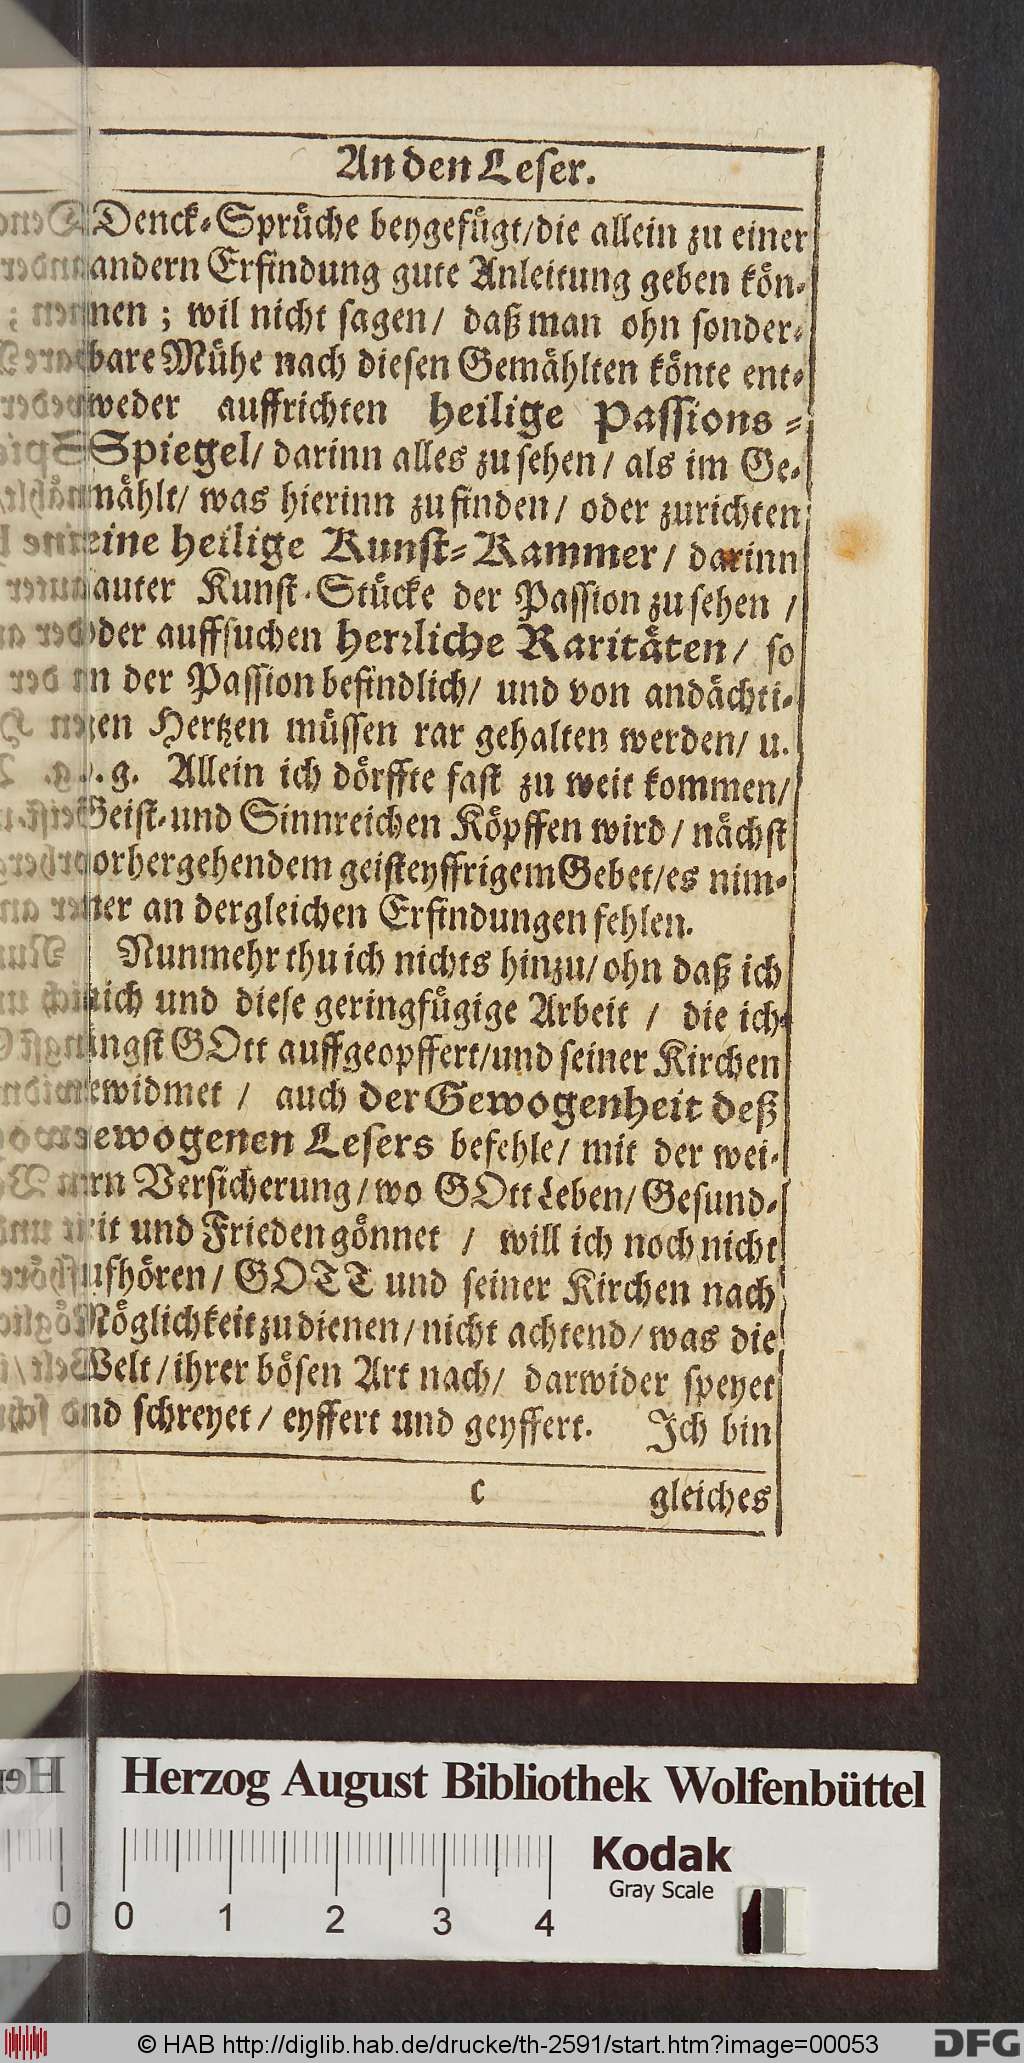 An den Leser.
Denck-Sprüche beygefügt/die allein zu einer
andern Erfindung gute Anleitung geben kön-
nen ; wil nicht sagen/ daß man ohn sonder-
bare Mühe nach diesen Gemählten könte ent-
weder auffrichten heilige Passions-
Spiegel/ darinn alles zu sehen/ als im Ge-
mählt/ was hierinn zu finden/ oder zurichten
eine heilige Kunst-Kammer/ darinn
lauter Kunst-Stücke der Passion zu sehen /
oder auffsuchen herrliche Raritäten/ so
in der Passion befindlich/ und von andächti-
gen Hertzen müssen rar gehalten werden/ u.
d. g. Allein ich dörffte fast zu weit kommen/
Geist-und Sinnreichen Köpffen wird/ nächst
vorhergehendem geisteyffrigem Gebet/es nim-
mer an dergleichen Erfindungen fehlen.
Nunmehr thu ich nichts hinzu/ohn daß ich
mich und diese geringfügige Arbeit / die ich
jüngst GOtt auffgeopffert/und seiner Kirchen
gewidmet / auch der Gewogenheit deß
gewogenen Lesers befehle/ mit der wei-
tern Versicherung/wo GOtt Leben/Gesund-
heit und Frieden gönnet / will ich noch nicht
aufhören/ GOTT und seiner Kirchen nach
Möglichkeit zu dienen/nicht achtend/was die
Welt/ihrer bösen Art nach/ darwider speyet
und schreyet/ eyffert und geyffert. Ich bin
c gleiches
Herzog August Bibliothek Wolfenbüttel
Kodak
Gray Scale
0 0 1 2 3 4
© HAB http://diglib.hab.de/drucke/th-2591/start.htm?image=00053
DFG